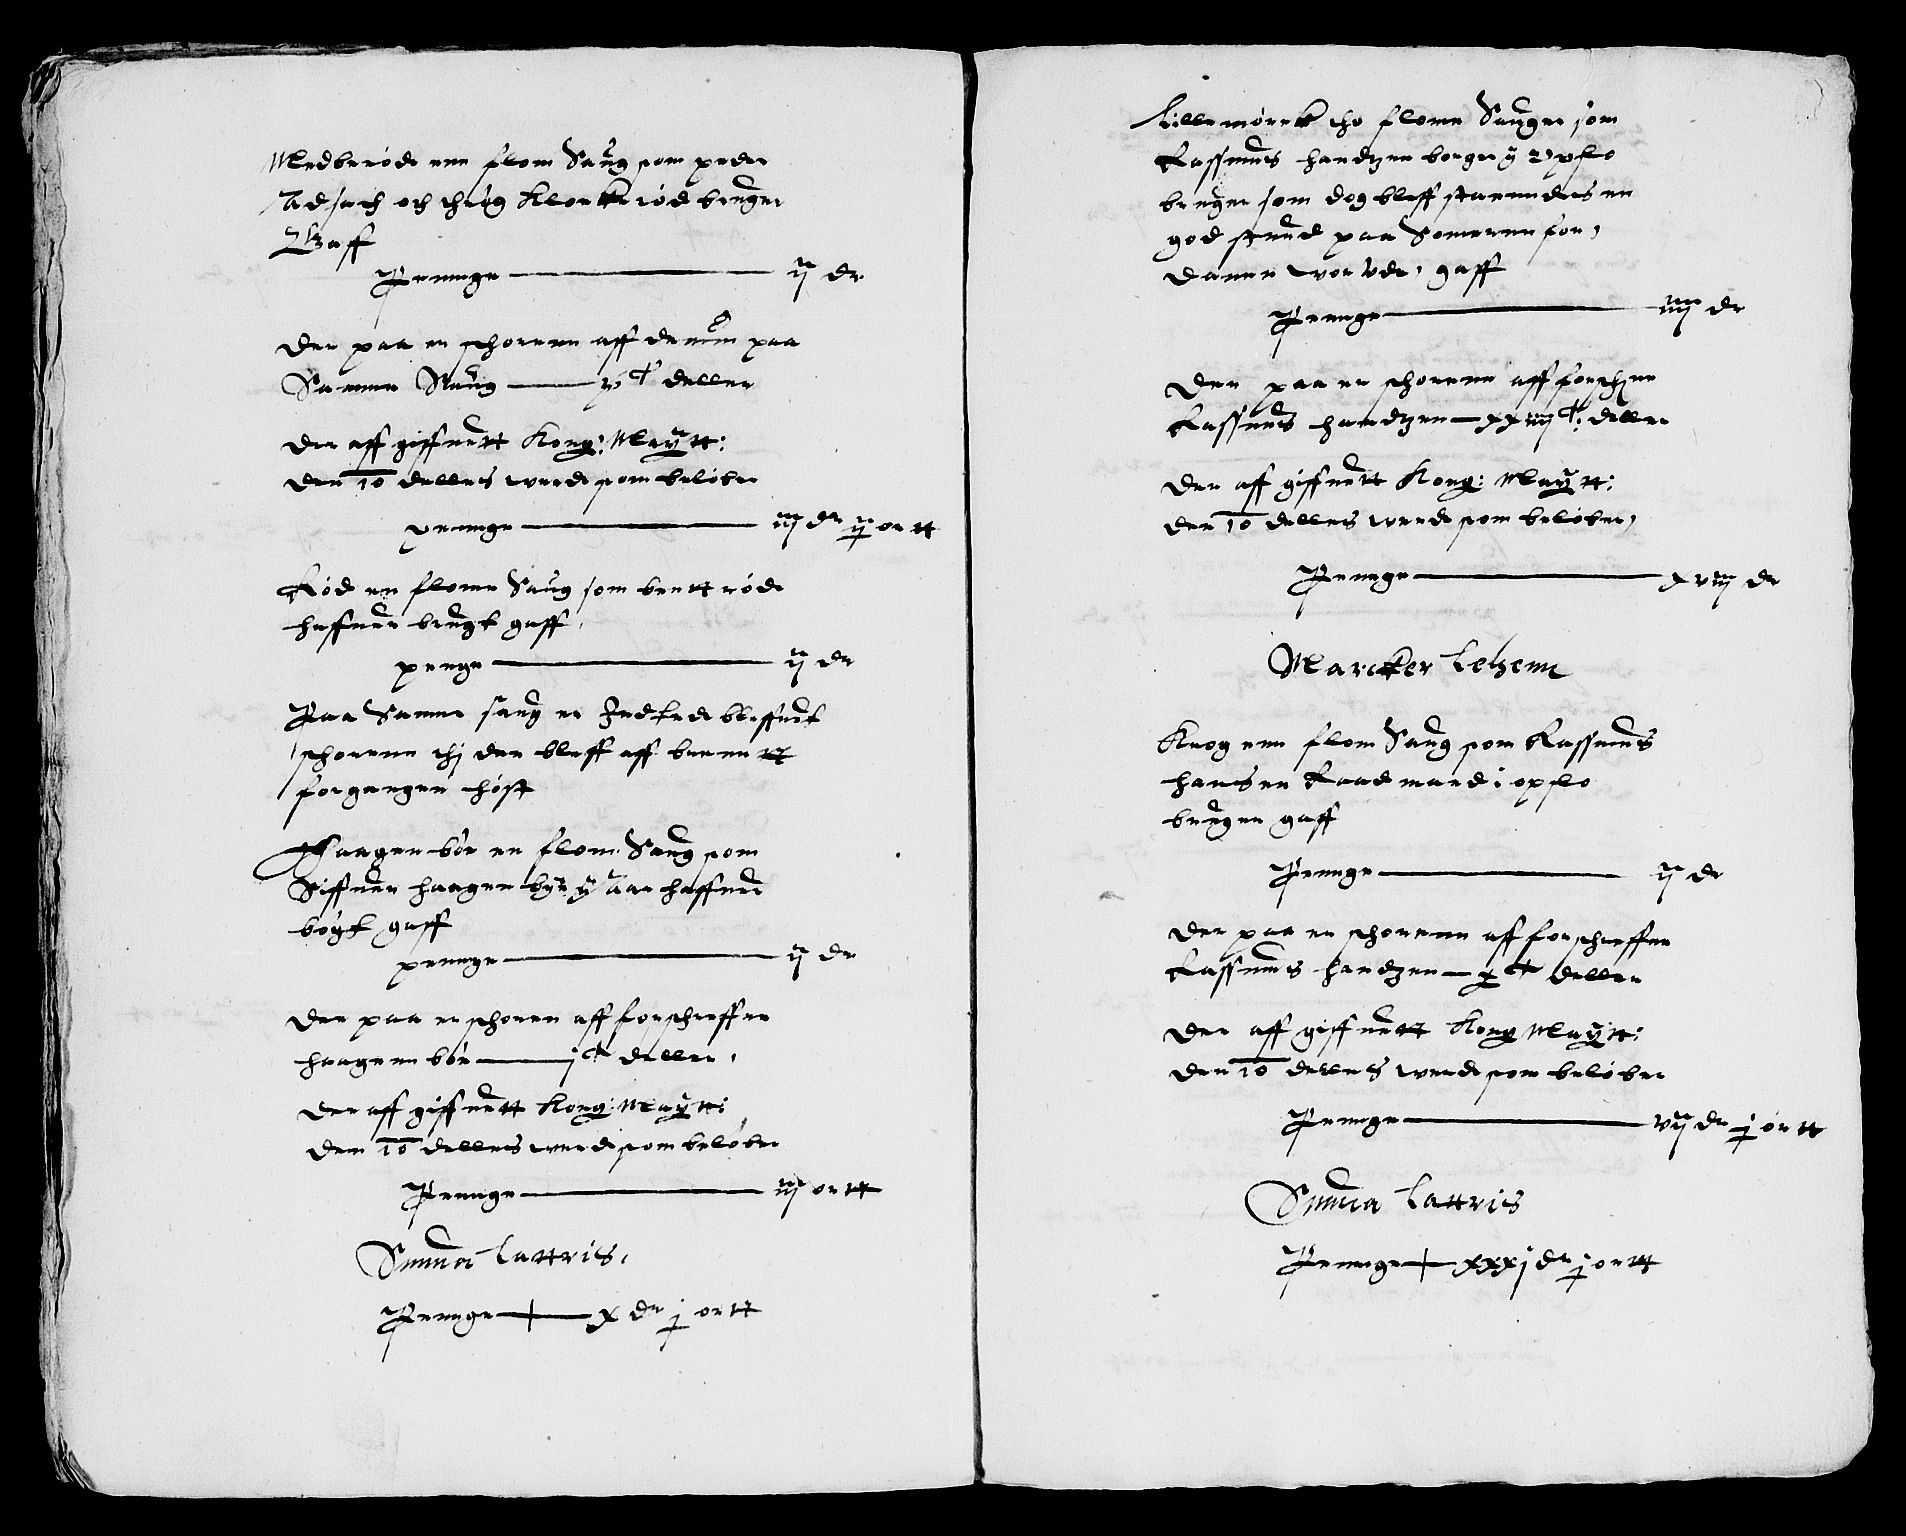 Medberøde enn flom Saug som peder
och Klocke rød bruger
Gaff
Peninge — ij dr
Der paa er schorenn aff denom paa
Samme Saug — vᶜ deller
Der aff giffuett Kong: Maytt:
den 10 dellers werde som beløber
peninge — iij dr ij ortt
Rød en flome Saug som bentt røde
haffuer brugt gaff.
penge — ij dr
Paa Samme saug er Indtede bleffuet
schorenn thj den bleff aff brennett
forgangen høst
Haagen bør en flom Saug som
Siffuer haagen i aar haffuer
bøgt gaff
peninge — ij dr
Der paa er schoren aff forschreffne
haagenn bør — jᶜ deller,
Der aff giffuett Kong: Maytt:
den 10 dellers werde som beløber
Peninge — iij ortt
Suma Lattris,
Peninge — x dr j ortt
Lillemørck tho flome Sauger som
Rassmus handtzen borger y Opslo
bruger som dog bleff staaendes en
god stund paa Someren for,
Peninge — iiij dr
Der paa er schorenn aff forschne
Rassmus handtzen — xxiiijᶜ: deller
Der aff giffuett Kong: Maytt:
den 10 dellers werde som beløber,
Peninge — xviij dr
Marcker Lehenn
Krog enn flom Saug som Rassmus
hansen Raadmand i opslo
bruger gaff
Peninge — ij dr
Der paa er schorenn aff forschreffne
Rassmus handtzen — xᶜ deller
Der aff giffuett Kong Maytt:
den 10 dellers werde som beløber
Peninge — vij dr j ortt
Suma Lattris
Peninge — xxxj dr j ortt